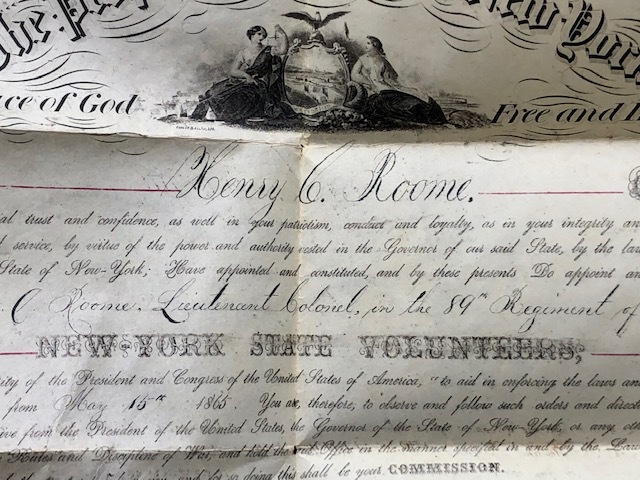 The Peop New York
ace of God Free and In
Henry C. Roome.
al trust and confidence, as well in your patriotism, conduct and loyalty, as in your integrity an
d service, by virtue of the power and authority vested in the Governor of our said State, by the law
State of New-York; Have appointed and constituted, and by these presents Do appoint an
C. Roome. Lieutenant Colonel, in the 89th Regiment of
NEW-YORK STATE VOLUNTEERS,
rity of the President and Congress of the United States of America, "to aid in enforcing the laws and
from May 15th 1865. You are, therefore, to observe and follow such orders and direct
ive from the President of the United States, the Governor of the State of New-York, or any oth
Rules and Discipline of War, and hold the said Office in the manner specified in and by the Law
and for so doing this shall be your COMMISSION.